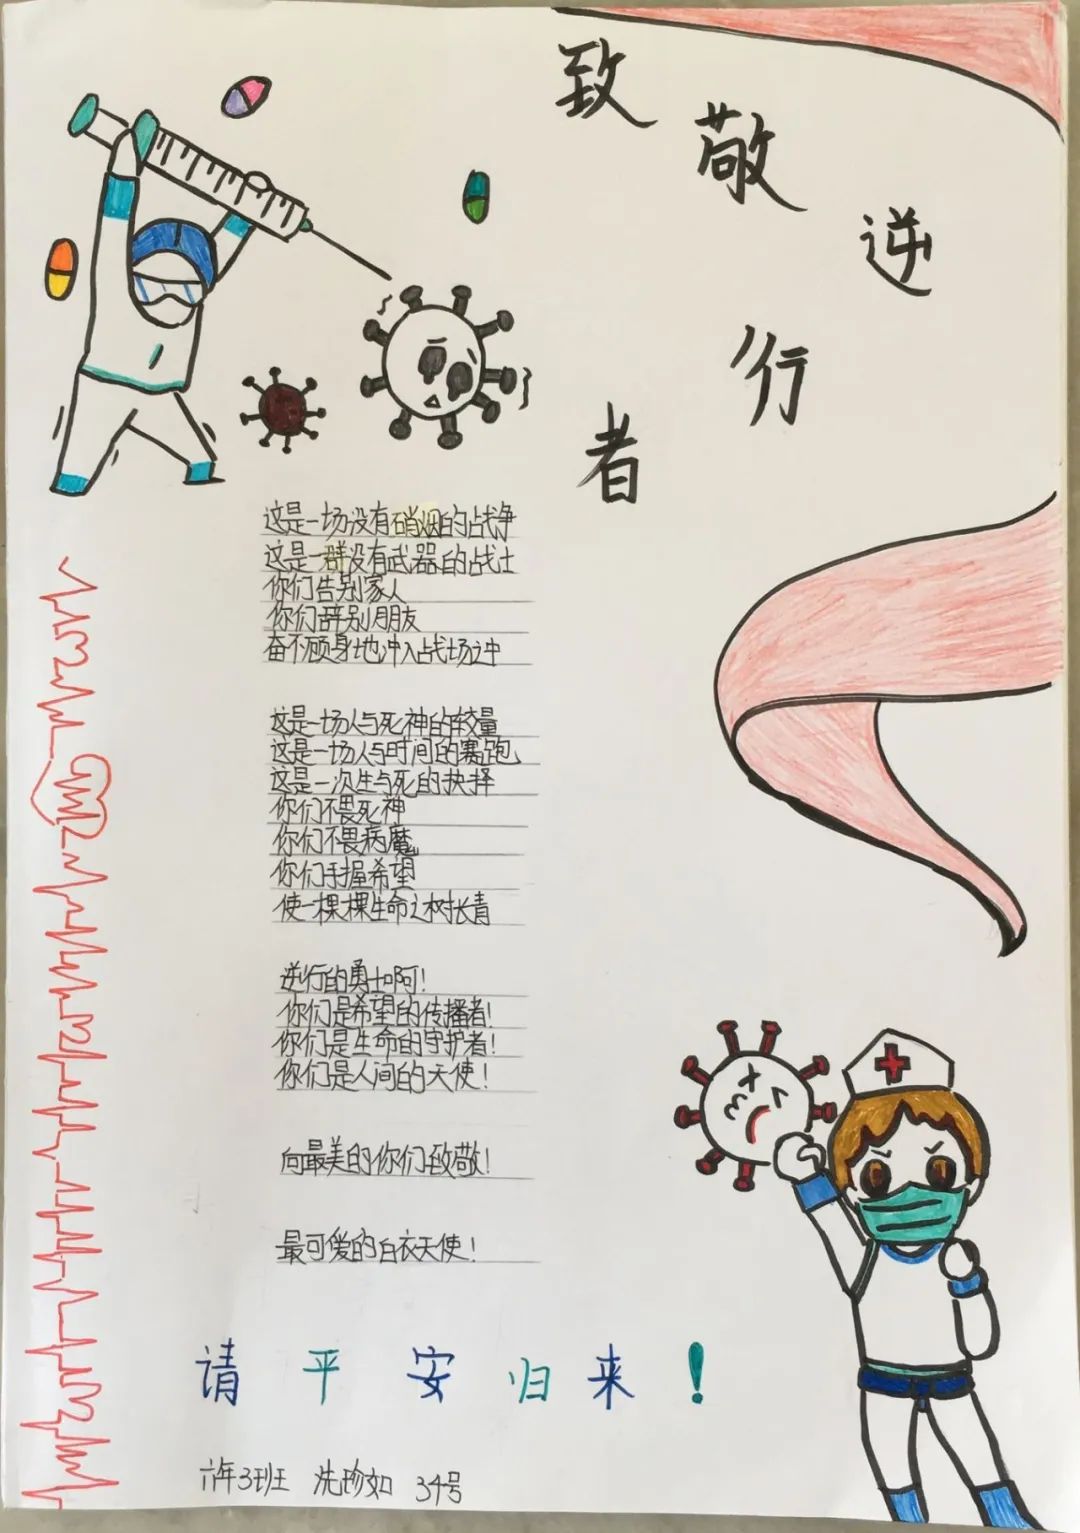 致敬逆行者
这是一场没有硝烟的战争
这是一群没有武器的战士
你们告别家人
你们辞别朋友
奋不顾身地冲入战场之中
这是一场人与死神的较量
这是一场人与时间的赛跑
这是一次生与死的抉择
你们不畏死神
你们不畏病魔
你们手握希望
使一棵棵生命之树长青
逆行的勇士啊!
你们是希望的传播者!
你们是生命的守护者!
你们是人间的天使!
向最美的你们致敬!
最可爱的白衣天使!
请平安归来!
六年3班 冼珍如 34号